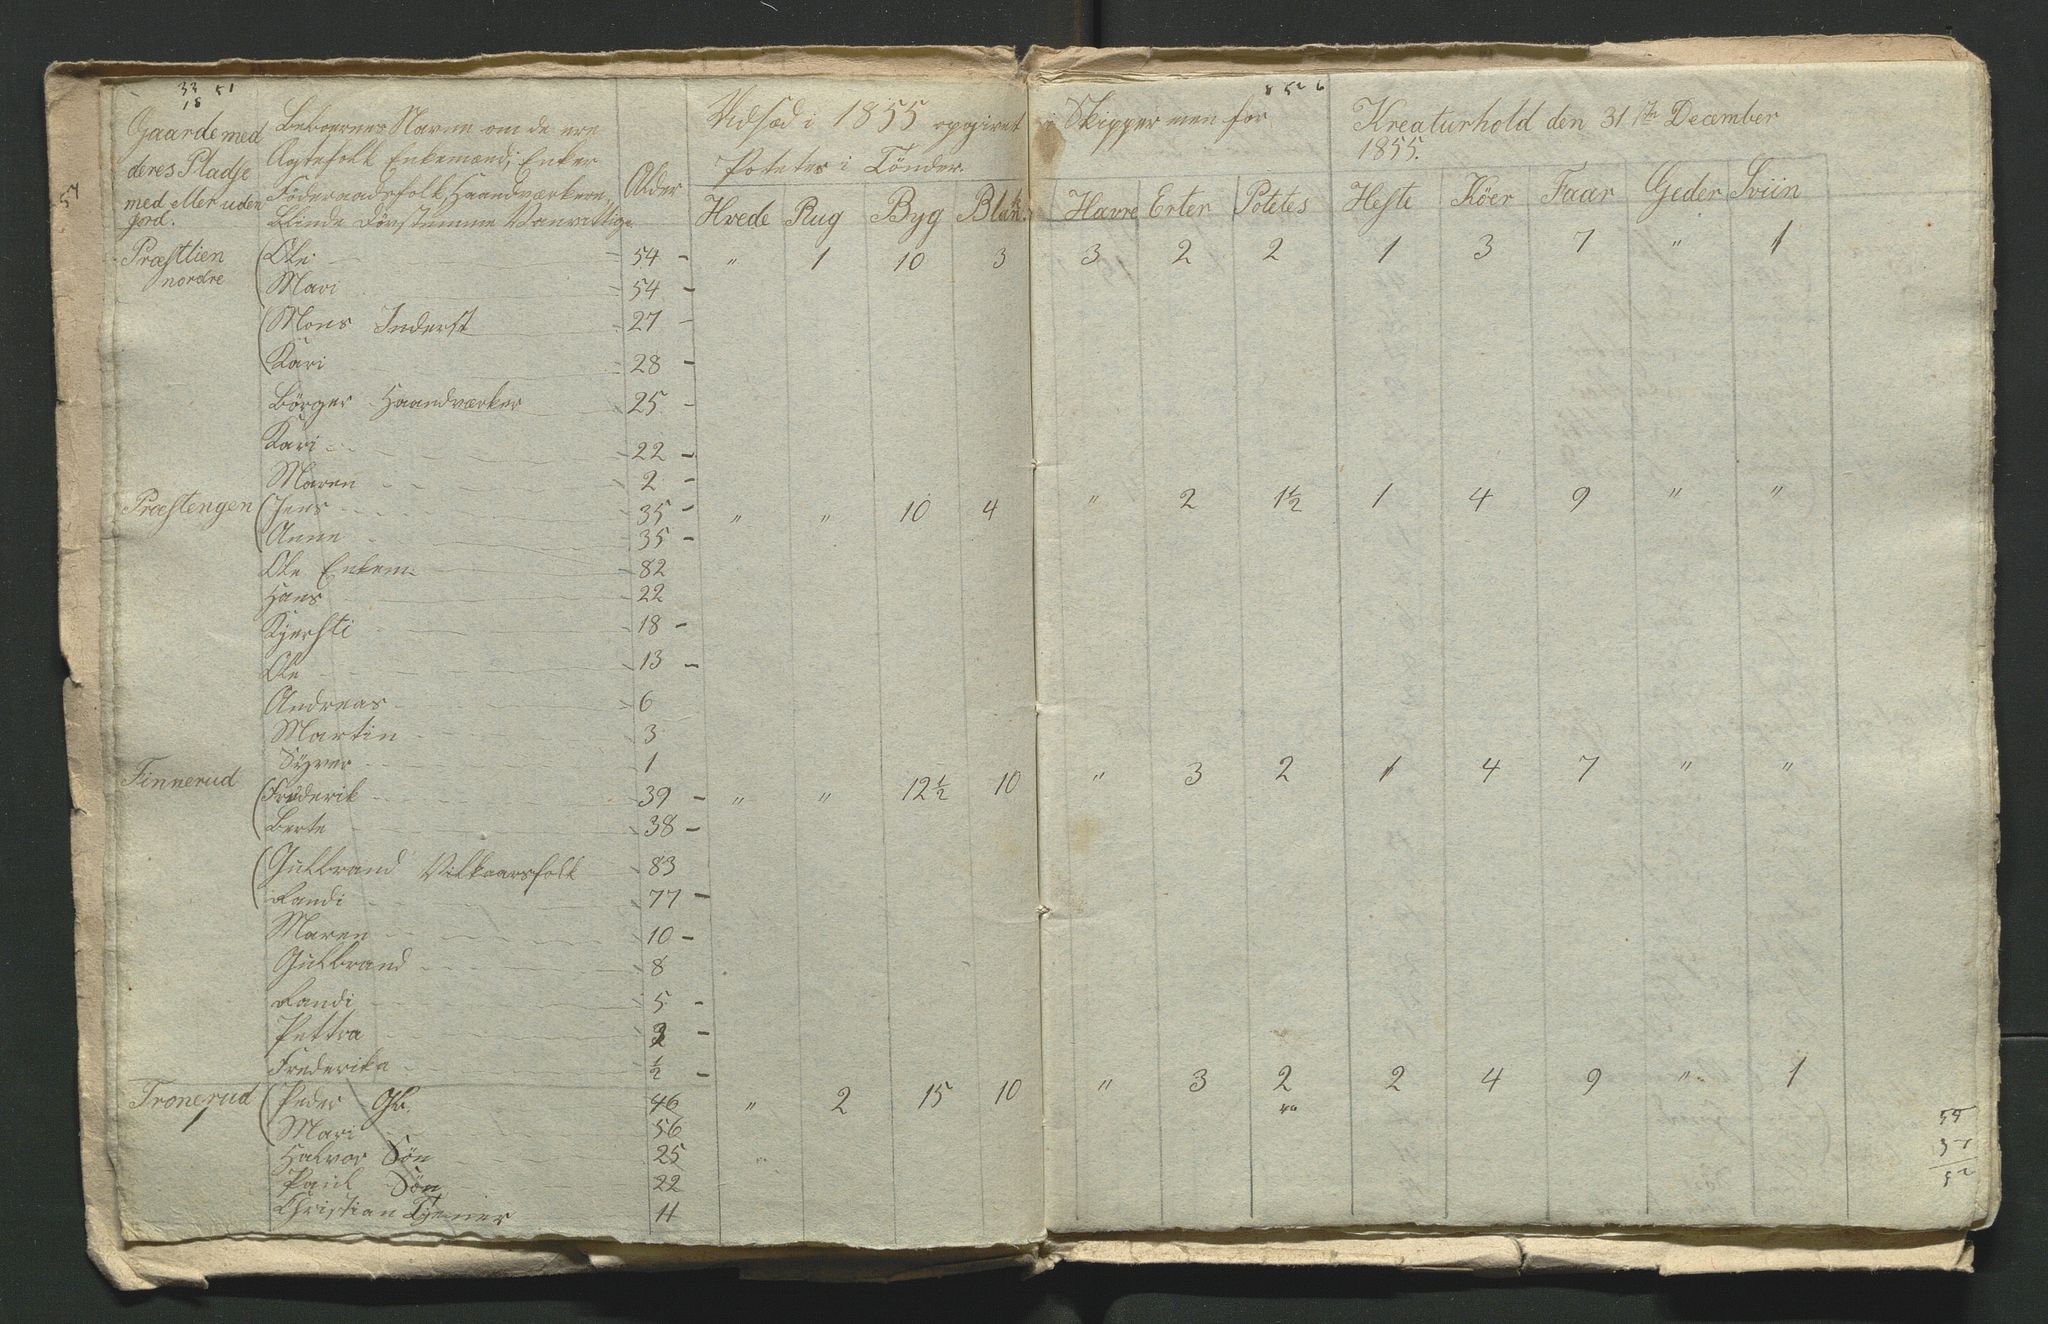 33 51
18
8 52 6
51
Gaarde med
deres Pladse
med eller uden
Jord.
Beboernes Navne om de ere
Ægtefolk Enkemænd, Enker
Föderaadsfolk, Haandværkere,
Blinde Dövstumme Vanvittige
Alder
Udsæd i 1855 opgivet i Skippermen for
Potetes i Tönder
Kreaturhold den 31 December
1855.
Hvede Rug Byg Blak. Havre Erter Potetes Heste Köer Faar Geder Sviin
Præstlien (Ole 54 - " 1 10 3 3 2 2 1 3 7 " 1
nordre (Mari 54 -
(Mons Inderst 27 -
(Kari 28 -
Börger Haandværker 25 -
Kari 22 -
Maren 2 -
Præstengen (Jens 35 - " " 10 4 " 2 1½ 1 4 9 " "
(Anne 35 -
Ole Enkem. 82
Hans 22
Kjersti 18 -
Ole 13 -
Andreas 6
Martin 3
Syver 1
Finnerud (Frederik 39 - " " 12½ 10 " 3 2 1 4 7 " "
(Berte 38 -
(Gulbrand Vilkaarsfolk 83
(Randi 77 -
Maren 10 -
Gulbrand 8
Randi 5 -
Pettra 3 -
Frederika ½ -
Tronerud (Peder Ol. 46 " 2 15 10 " 3 2 2 4 9 " 1
(Mari 56
Halvor Sön 25
Paul Sön 22
Christian Tjener 11